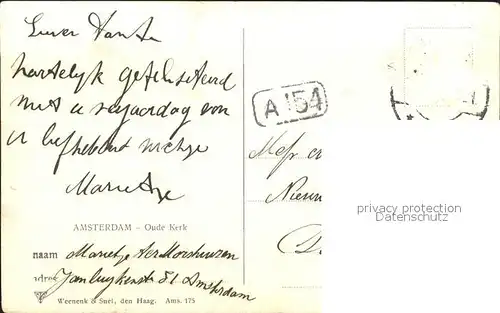 Lieve Tante
hartelijk gefeliciteerd
met u verjaardag van
u liefhebbend nichtje
Marietje
AMSTERDAM – Oude Kerk
naam Marietje ter Morshuizen
adres Jan Luykenstr 81 Amsterdam
Weenenk & Snel, den Haag. Ams. 175
A 154
Mej
Nieuw
privacy protection
Datenschutz